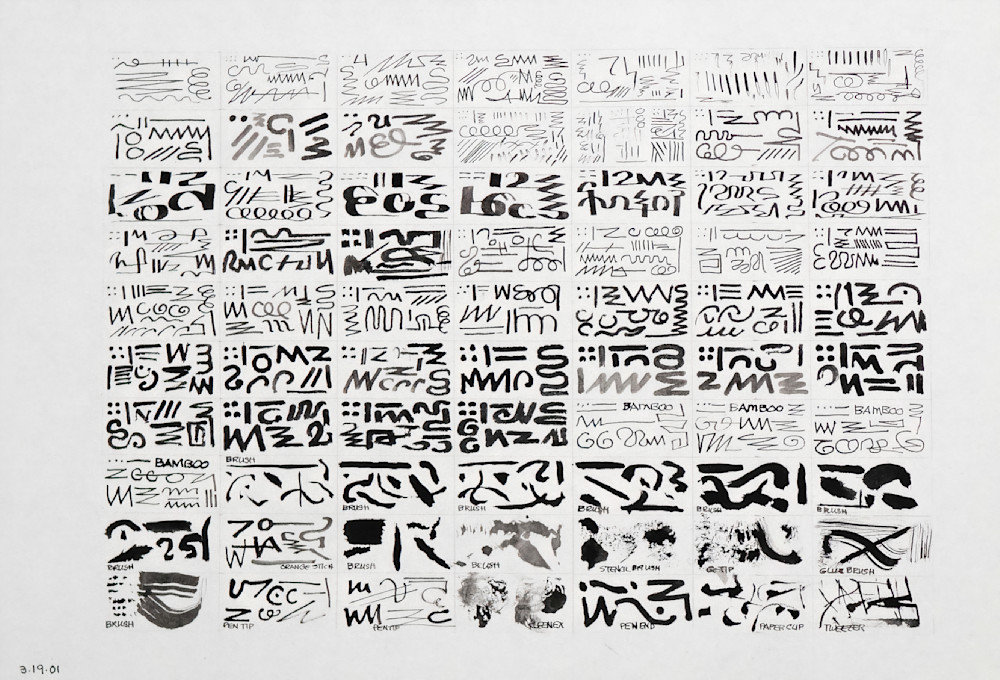 BAMBOO
BAMBOO
BAMBOO
BAMBOO
BRUSH
BRUSH
BRUSH
BRUSH
BRUSH
BRUSH
BRUSH
ORANGE STICK
BRUSH
BRUSH
STENCIL BRUSH
Q-TIP
GLUE BRUSH
BRUSH
PEN TIP
PEN TIP
KLEENEX
PEN END
PAPER CUP
TWEEZER
3.19.01